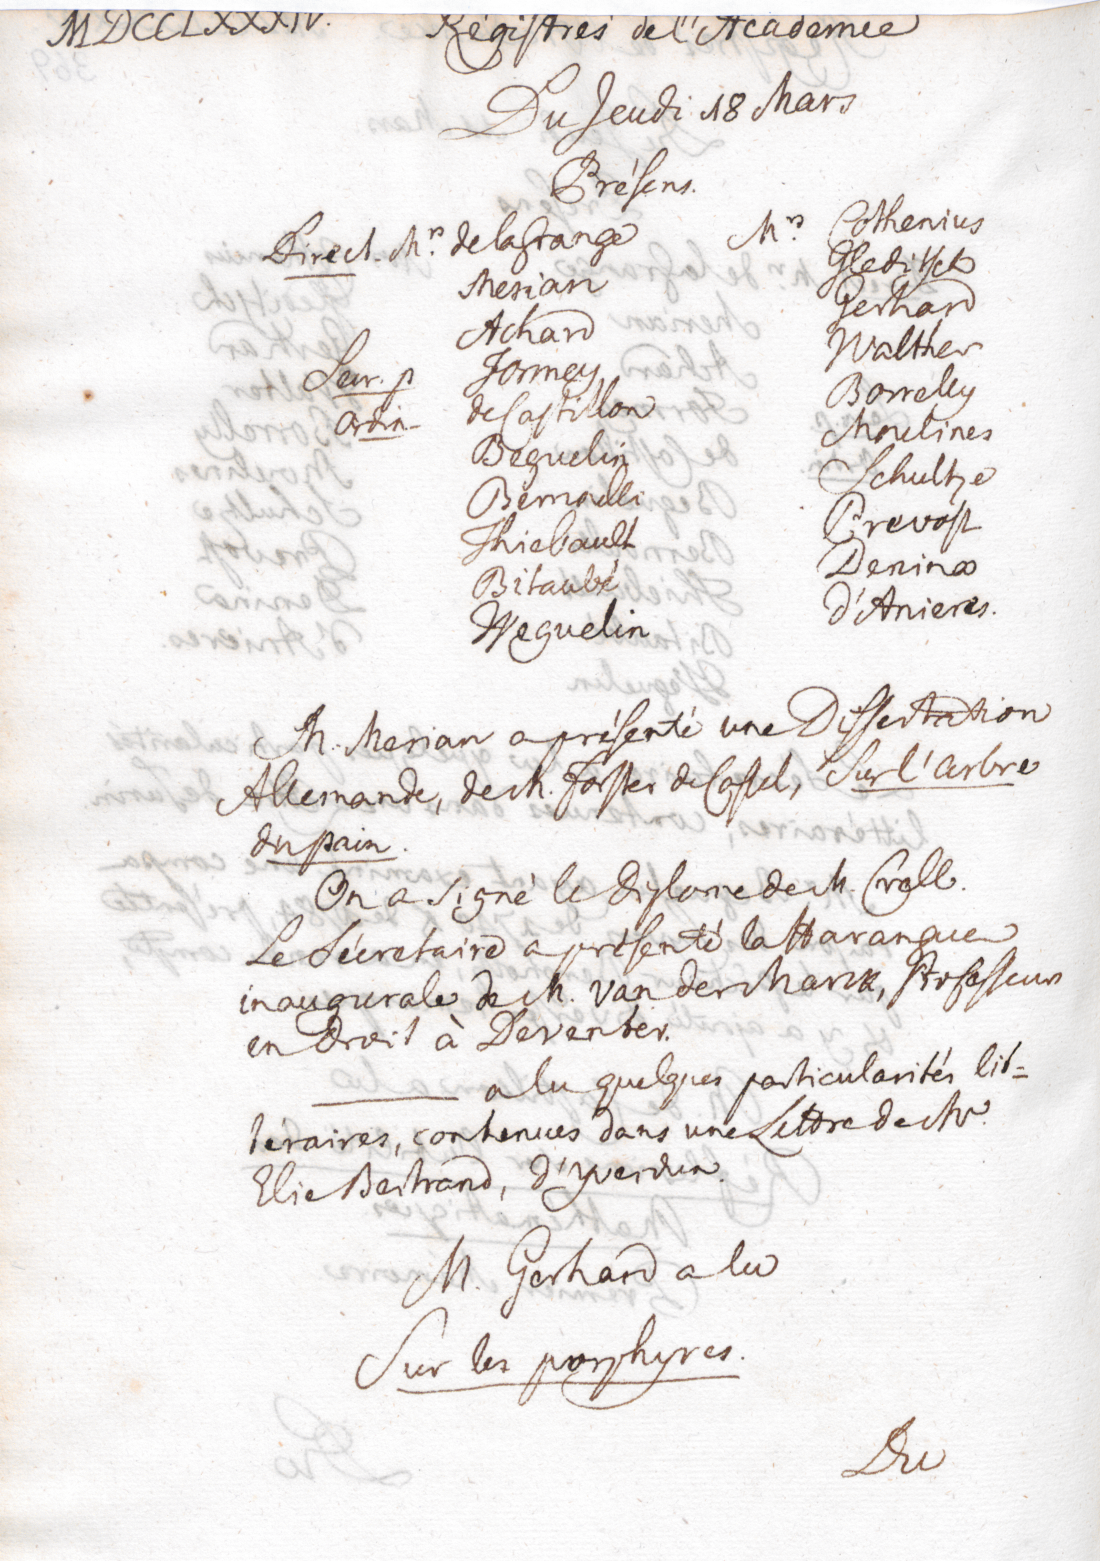 MDCCLXXXIV. Régistres de l'Academie
Du Jeudi 18 Mars
Présens.
Direct. Mrs. de la Grange
Merian
Achard
Secr. p Formey
Ordin- de Castillon
Beguelin
Bernoulli
Thiebault
Bitaubé
Weguelin
Mrs. Cothenius
Gleditsch
Gerhard
Walther
Borrelly
Moulines
Schultze
Prevost
Denina
d'Anieres.
M. Merian a présenté une Dissertation
Allemande, de M. Forster de Cassel, Sur l'arbre
du pain.
On a signé le diplome de M. Crell.
Le Sécretaire a présenté la Harangue
inaugurale de M. van der Marck, Professeur
en Droit à Deventer.
a lu quelques particularités lit=
téraires, contenues dans une Lettre de Mr.
Elie Bertrand, d'Yverdun.
M. Gerhard a lu
Sur les porphyres.
Du